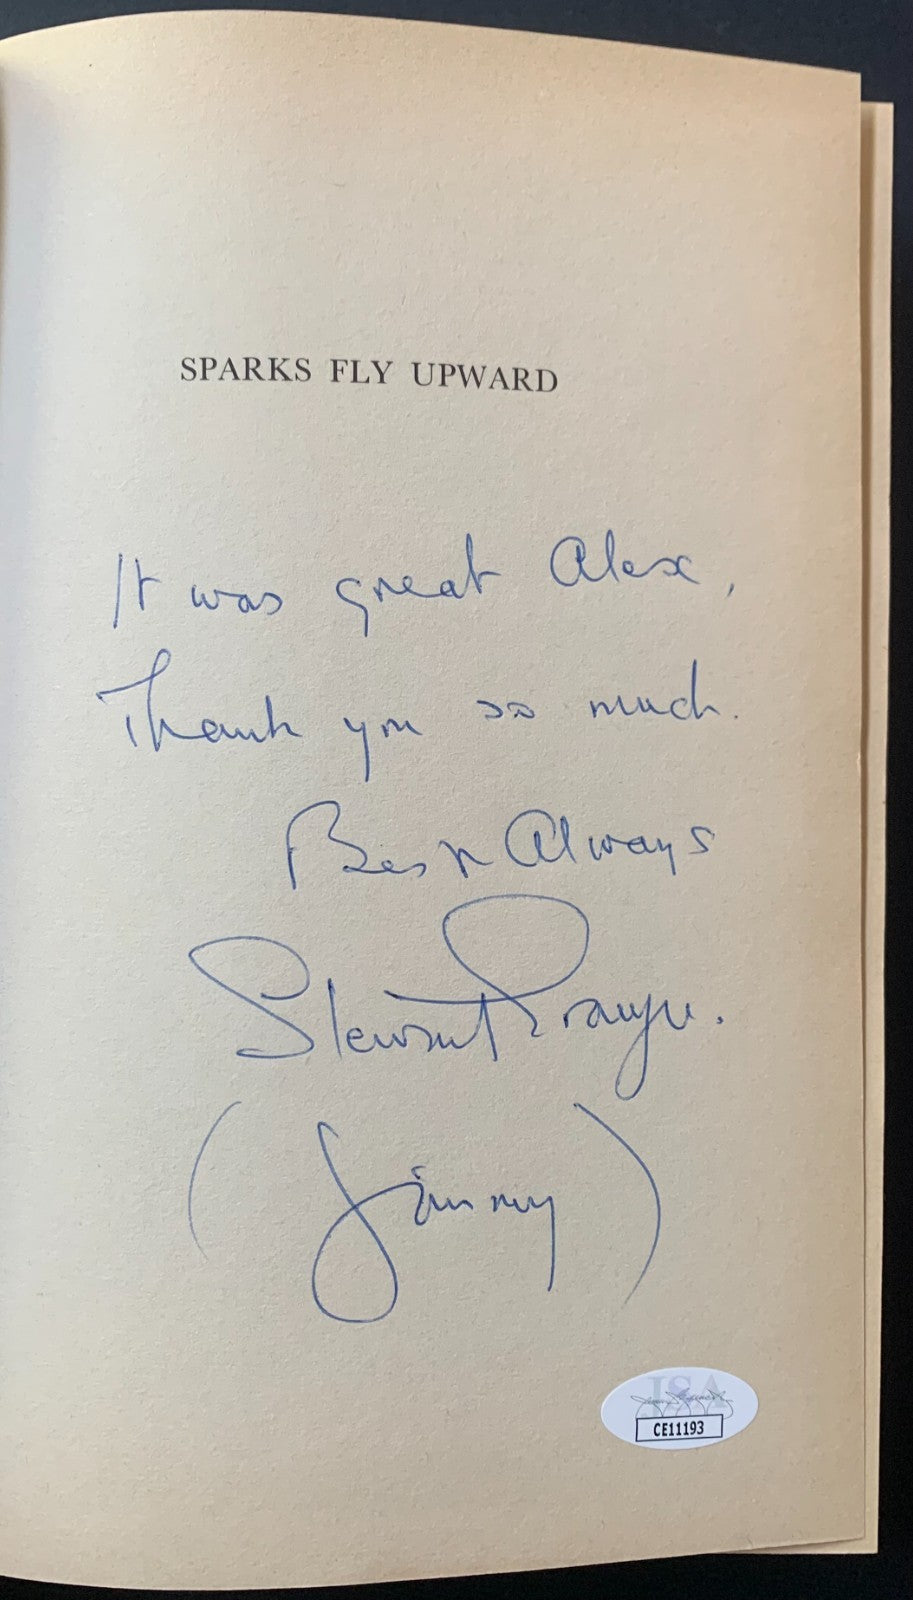 SPARKS FLY UPWARD
It was great Alex,
Thank you so much.
Best Always
Stewart Granger.
(Jimmy)
JSA
CE11193